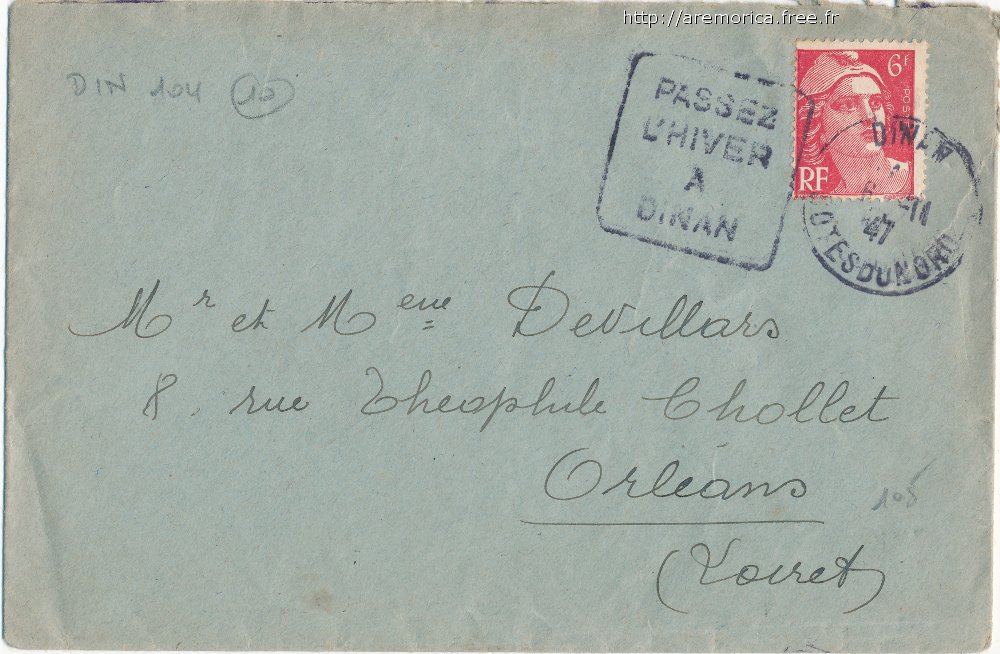 http://aremorica.free.fr
DIN 104 10
PASSEZ
L'HIVER
A
DINAN
6F
RF
DINAN
6 -11
47
COTES DU NORD
Mr et Mme Devillars
8, rue Théophile Chollet
Orléans
105
(Loiret)